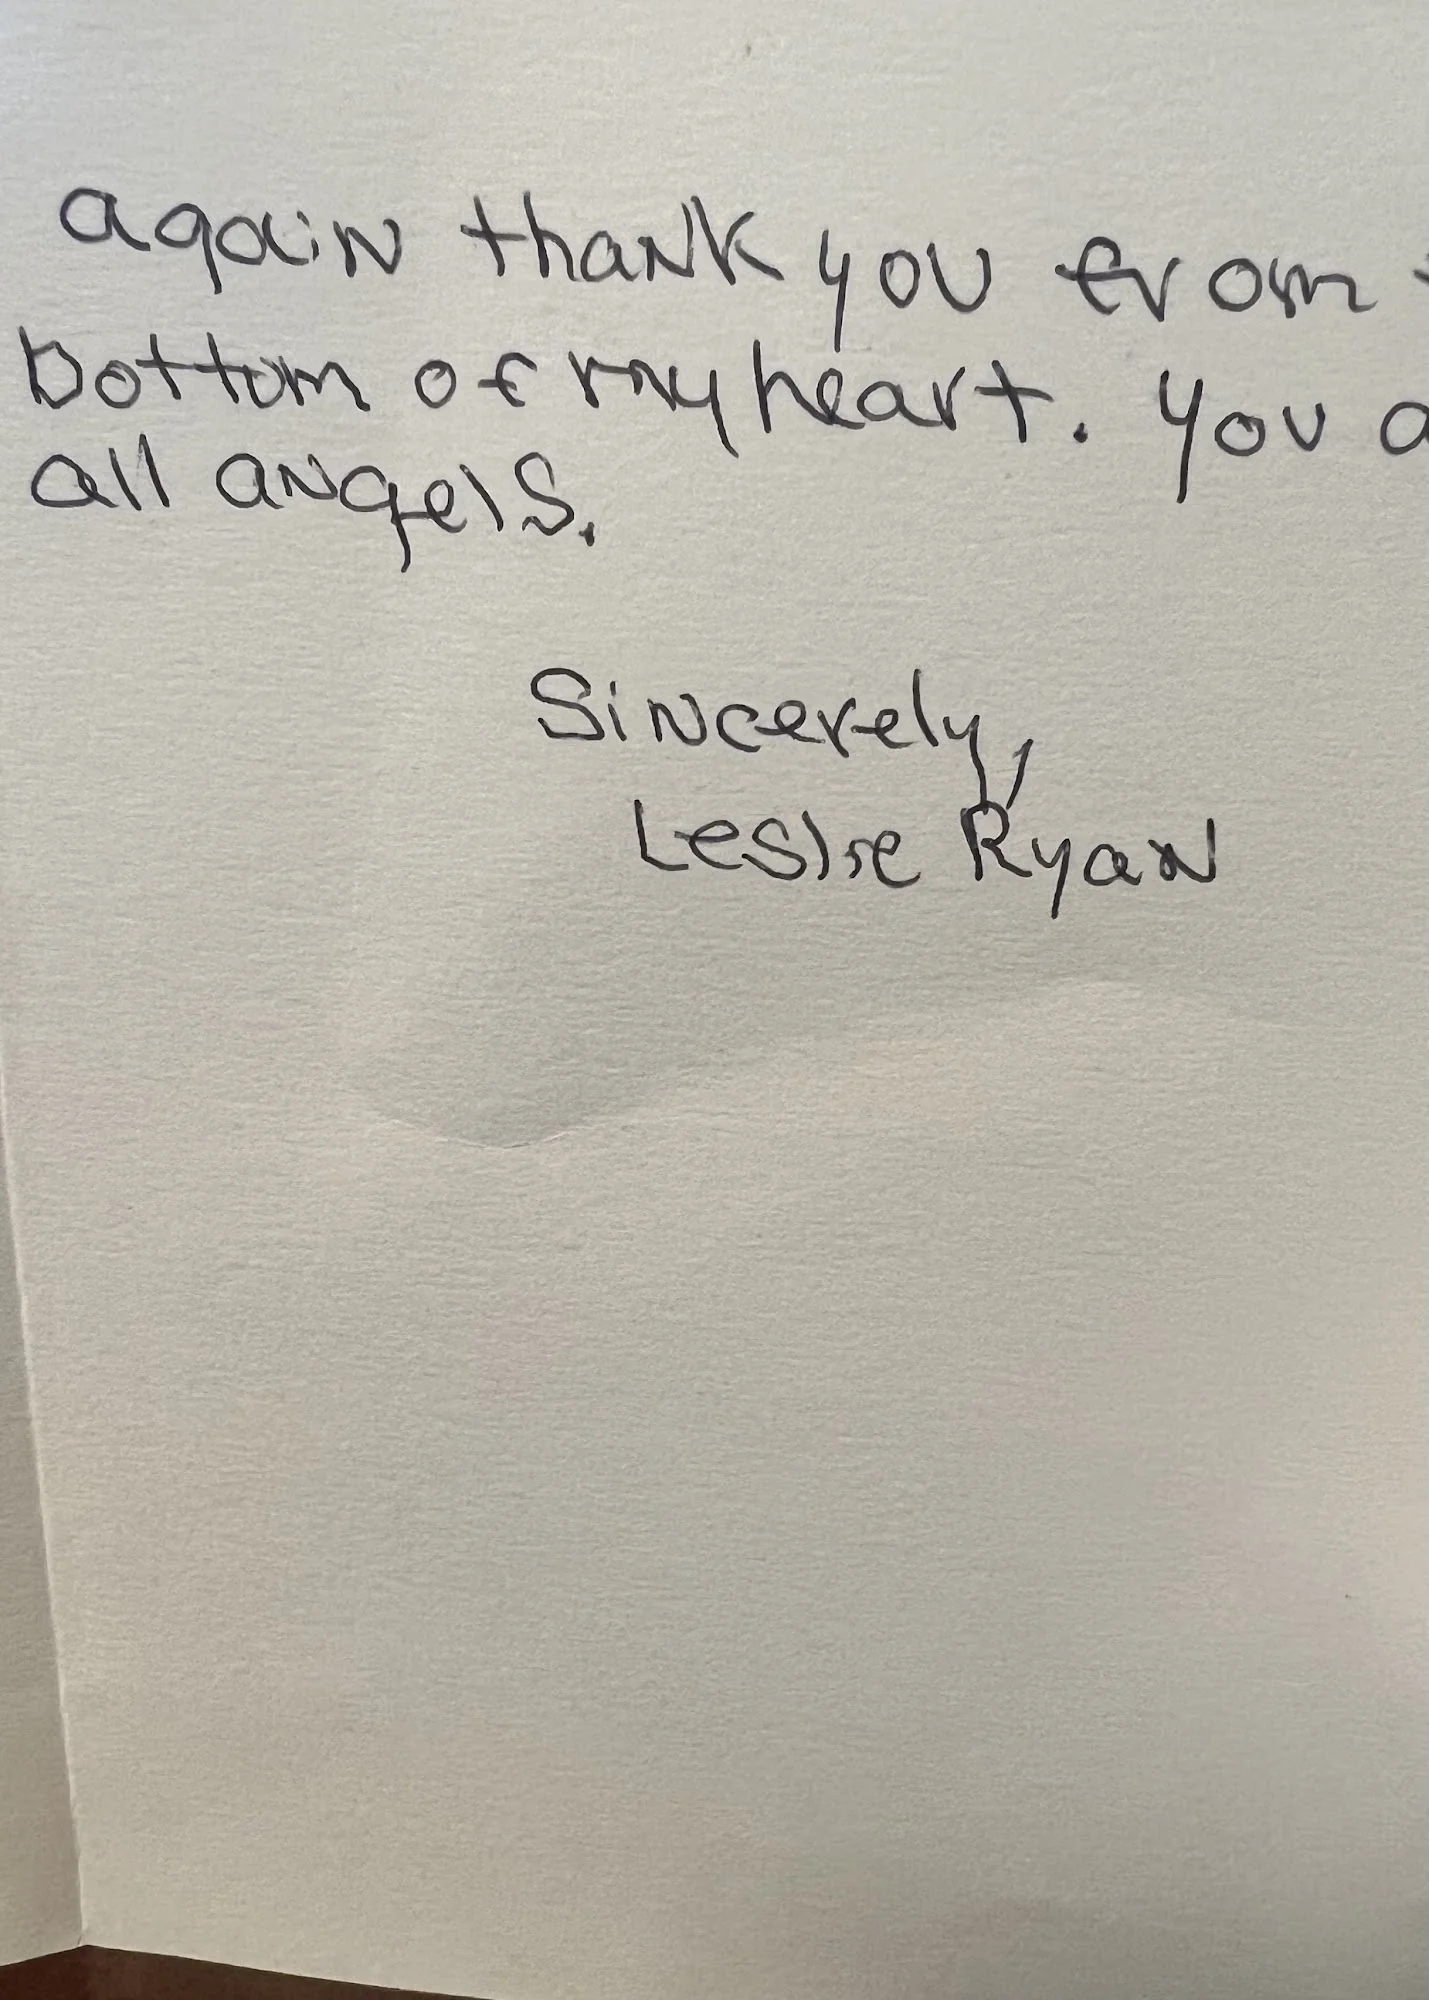 again thank you from
bottom of my heart. You a
all angels.
Sincerely,
Leslie Ryan